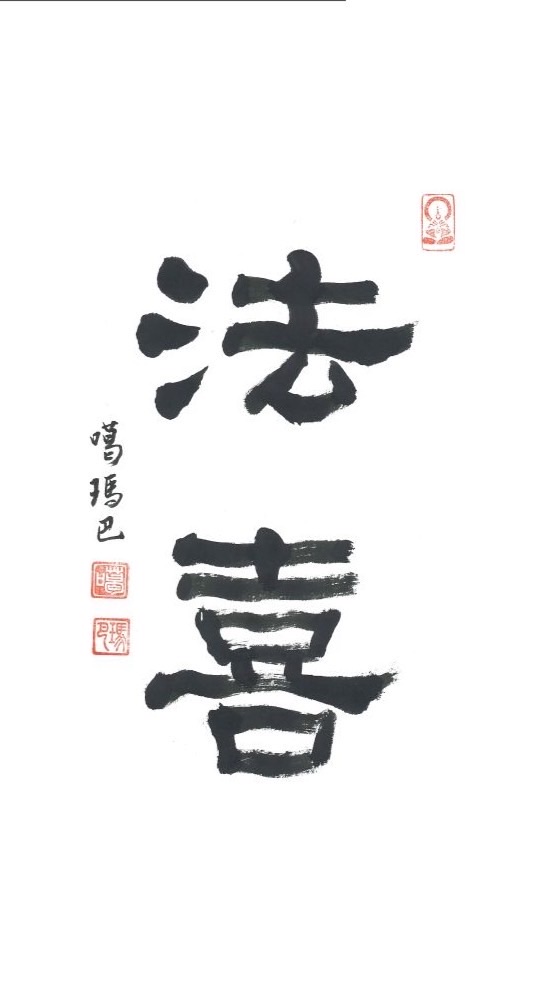 法喜
噶瑪巴
噶
瑪巴